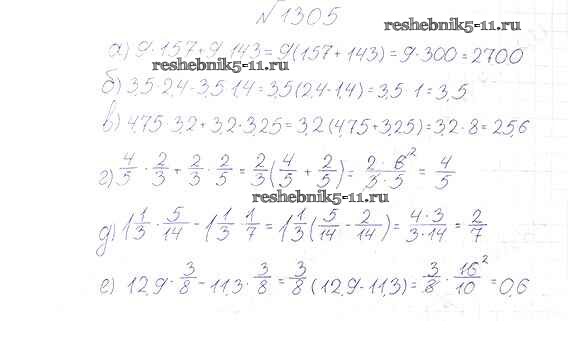 №1305
reshebnik5-11.ru
а) 9·157+9·143 = 9(157+143) = 9·300 = 2700
reshebnik5-11.ru
б) 3,5·2,4-3,5·1,4 = 3,5(2,4-1,4) = 3,5·1 = 3,5
в) 4,75·3,2+3,2·3,25 = 3,2(4,75+3,25) = 3,2·8 = 25,6
г) 4/5 · 2/3 + 2/3 · 2/5 = 2/3(4/5 + 2/5) = 2·6²/3·5 = 4/5
reshebnik5-11.ru
д) 1 1/3 · 5/14 - 1 1/3 · 1/7 = 1 1/3(5/14 - 2/14) = 4·3/3·14 = 2/7
е) 12,9 · 3/8 - 11,3 · 3/8 = 3/8(12,9-11,3) = 3/8 · 16²/10 = 0,6